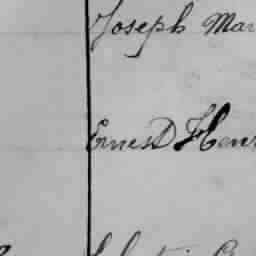 Joseph Mar
Ernest Henr